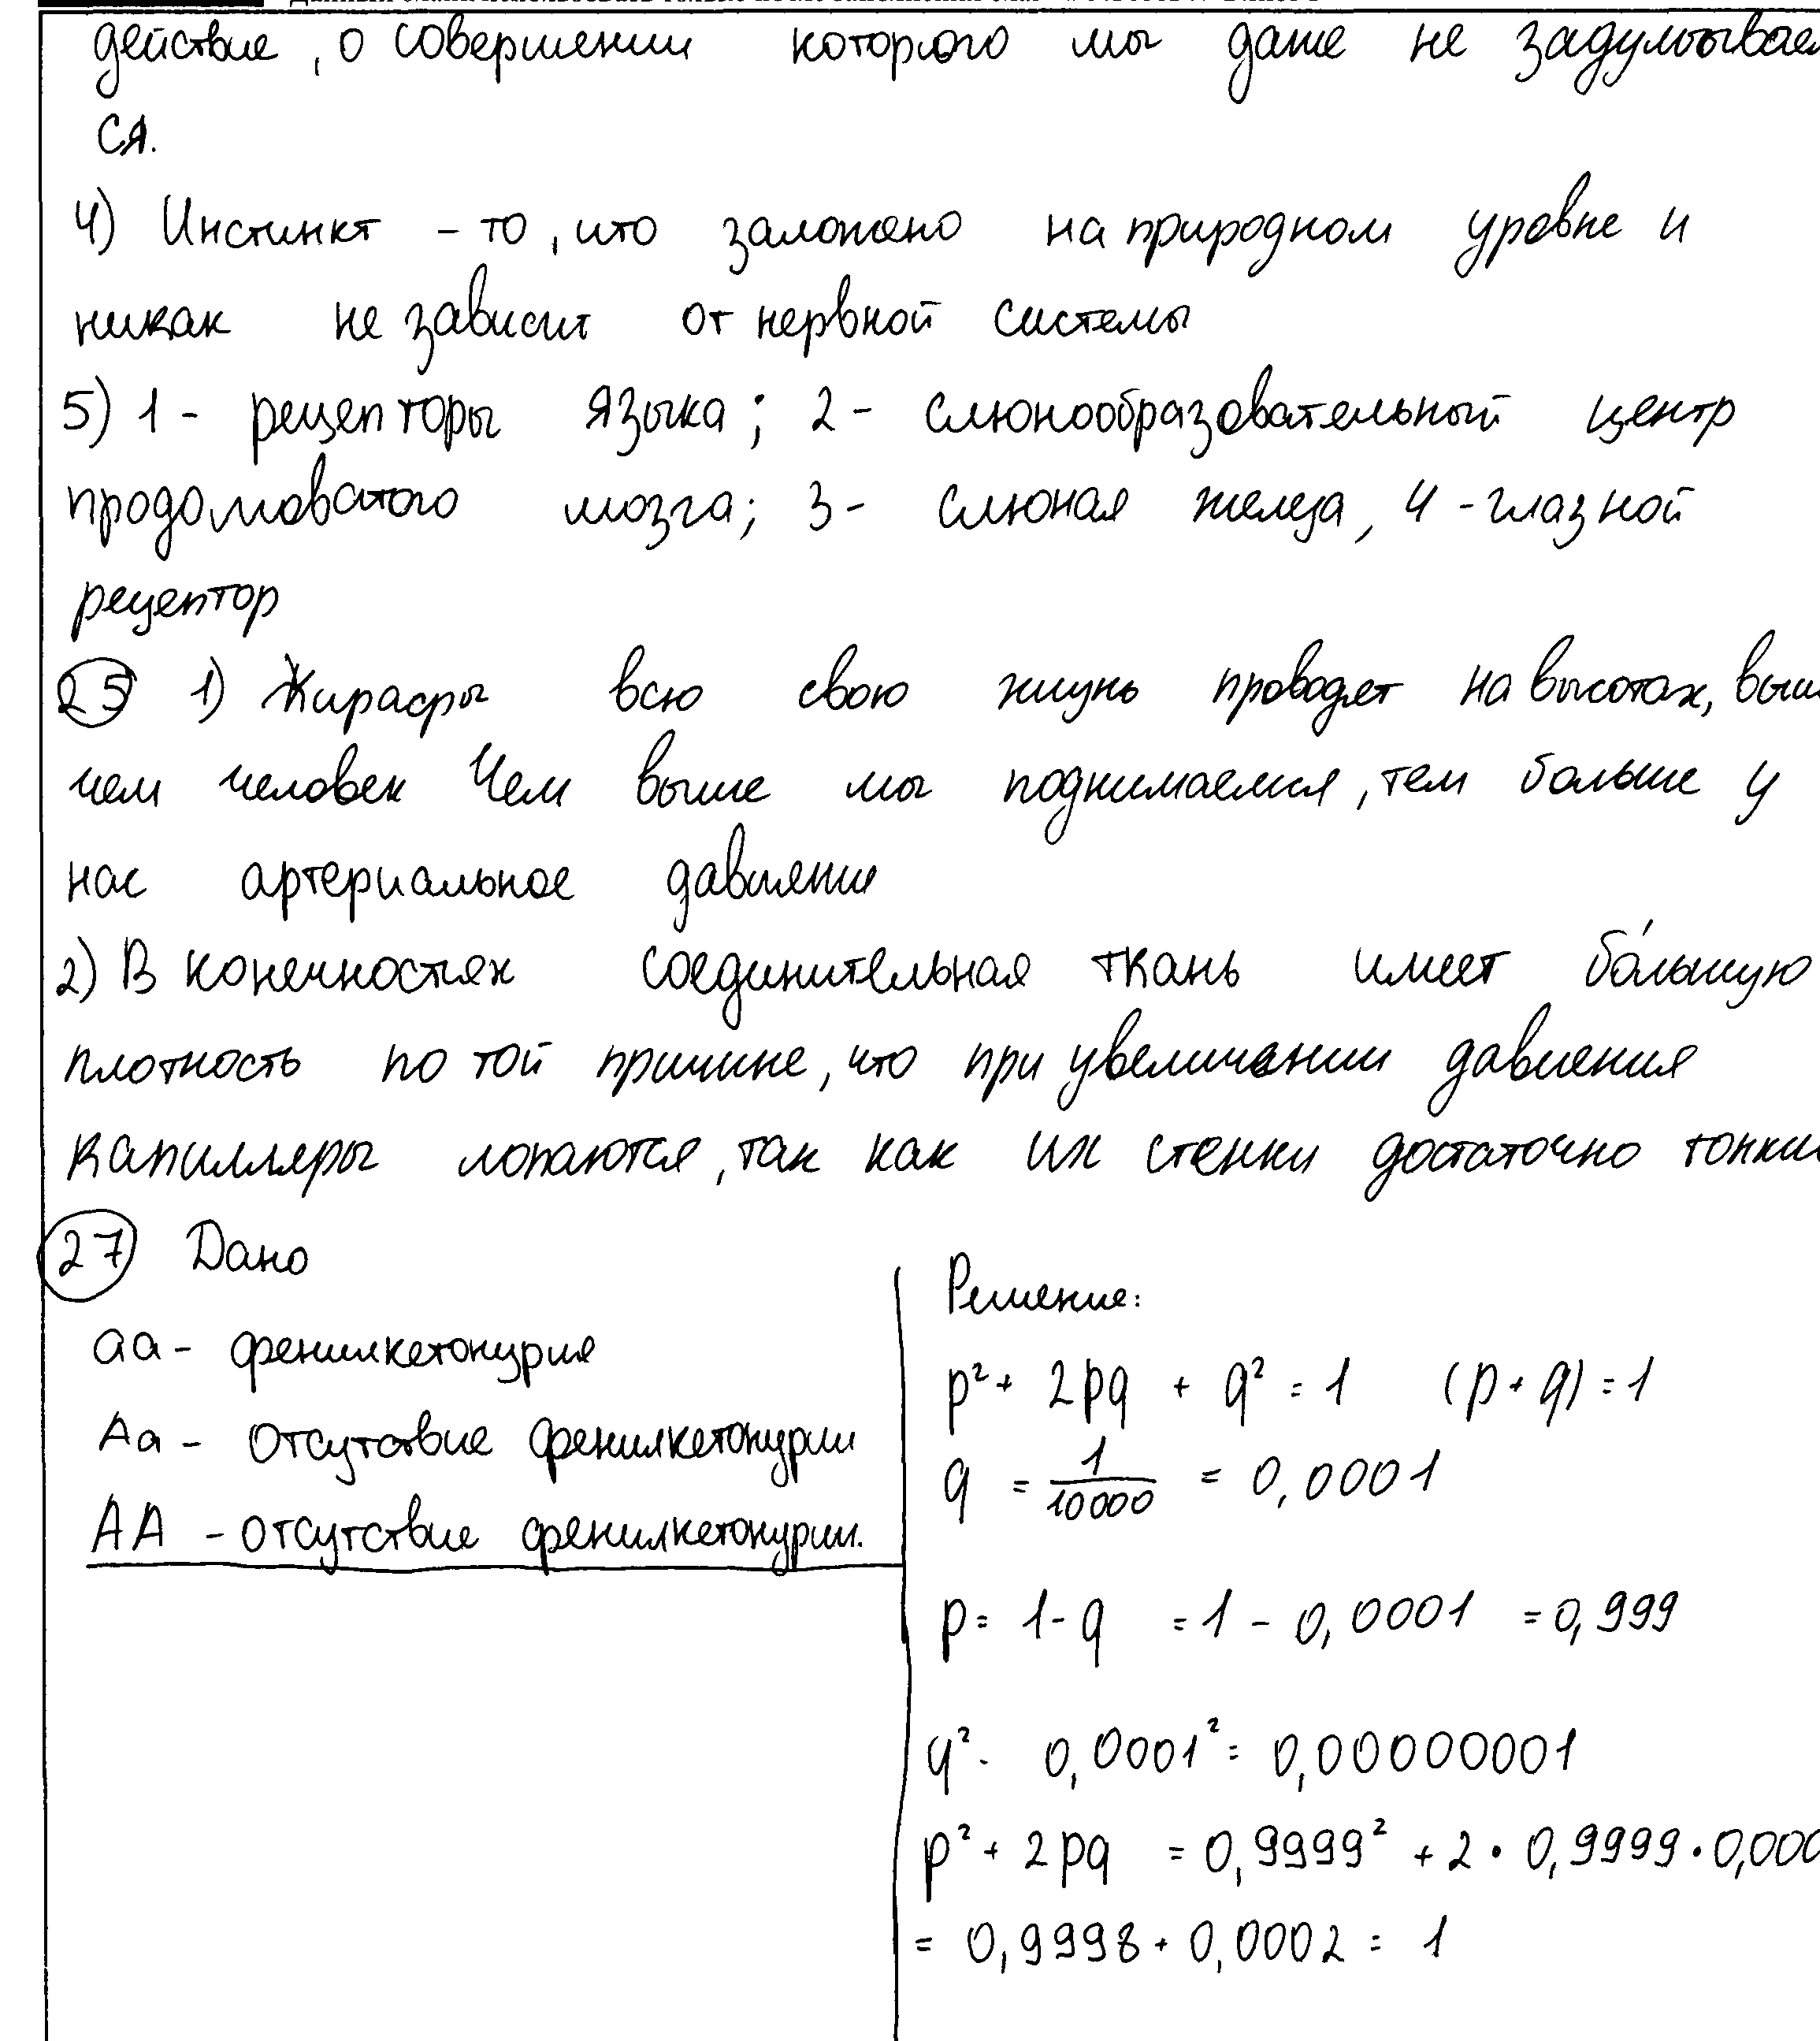 действие, о совершении которого мы даже не задумываем
ся.
4) Инстинкт - то, что заложено на природном уровне и
никак не зависит от нервной системы
5) 1 - рецепторы языка; 2 - слюнообразовательный центр
продолговатого мозга; 3 - слюная железа, 4 - глазной
рецептор
25 1) Жирафы всю свою жизнь проводят на высотах, выше
чем человек Чем выше мы поднимаемся, тем больше у
нас артериальное давление
2) В конечностях соединительная ткань имеет бо́льшую
плотность по той причине, что при увеличении давления
капилляры лопаются, так как их стенки достаточно тонкие
27 Дано
аа - фенилкетонурия
Аа - отсутствие фенилкетонурии
АА - отсутствие фенилкетонурии.
Решение:
p² + 2pq + q² = 1 (p + q) = 1
q = 1/10000 = 0,0001
p = 1 - q = 1 - 0,0001 = 0,999
q² - 0,0001² = 0,00000001
p² + 2pq = 0,9999² + 2 · 0,9999 · 0,000
= 0,9998 + 0,0002 = 1